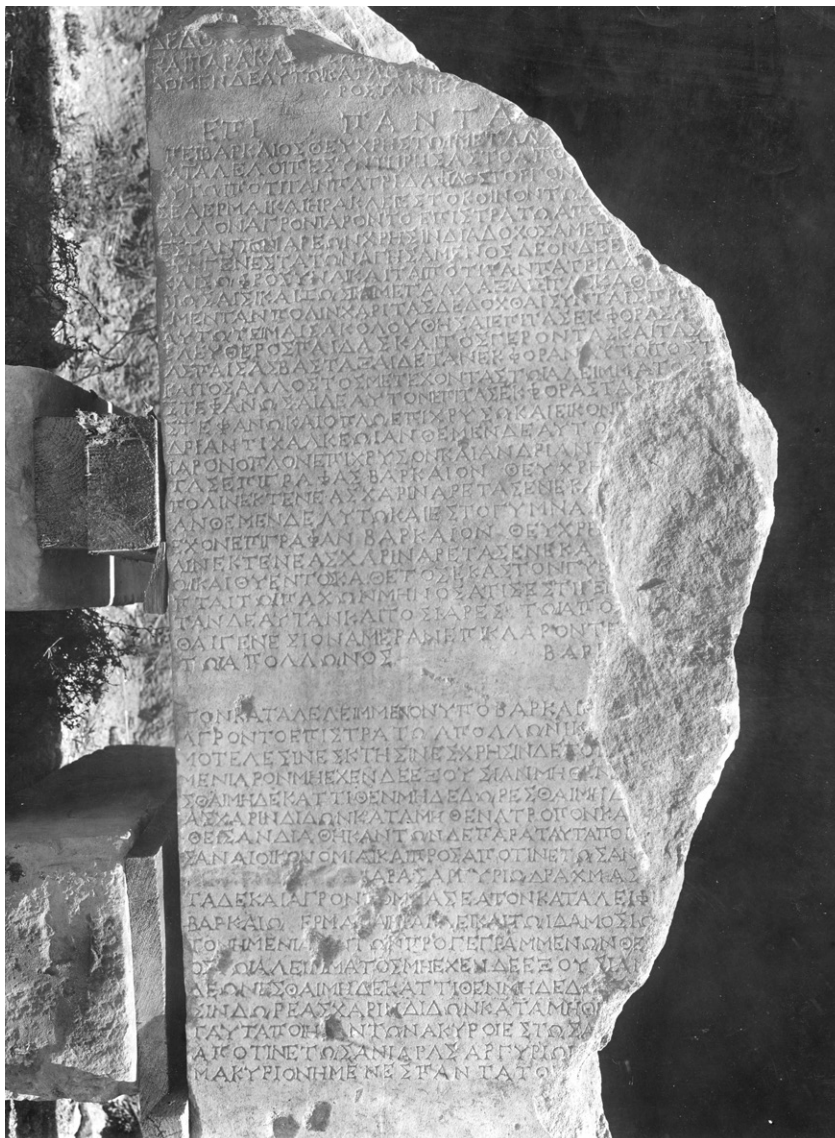 ΔΕΔΟ
ΚΑΙΠΑΡΑΚΑ
ΔΟΜΕΝΔΕΑΥΤΩΚΑΤΑ
ΡΟΣΤΑΝΙ
ΕΠΙ ΠΑΝΤΑ
ΠΕΙΒΑΡΚΑΙΟΣΘΕΥΧΡΗΣΤΩΜΕΤΑΛΛΑ
ΚΑΤΑΛΕΛΟΙΠΕΣΩΝΤΗΡΗΣΑΣΤΟΑΠΟ
ΑΥΤΩΠΟΤΙΤΑΝΠΑΤΡΙΔΑΦΙΛΟΣΤΟΡΓΟΝ
ΔΕΑΕΡΜΑΙΚΑΙΗΡΑΚΛΕΙΕΣΤΟΚΟΙΝΟΝΤΩΑ
ΑΛΛΟΝΑΓΡΟΝΙΑΡΟΝΤΟΕΠΙΣΤΡΑΤΩΑΠΟ
ΕΣΤΑΝΤΩΝΙΑΡΕΩΝΧΡΗΣΙΝΔΙΑΔΟΧΟΣΑΜΕ
ΕΝΤΕΝΕΣΤΑΤΩΝΑΓΗΣΑΜΕΝΟΣΔΕΟΝΔΕΕ
ΔΙΑΣΩΦΡΟΣΥΝΑΙΚΑΙΤΑΠΟΤΙΠΑΝΤΑ
ΖΙΩΣΑΙΣΙΚΑΙΤΩΣΜΕΤΑΛΛΑΞΑΝΤΑΣ
ΜΕΝΤΑΝΠΟΛΙΝΧΑΡΙΤΑΣΔΕΔΟΧΘΑΙΣΥΝΤΑΙΣ
ΑΥΤΩΤΕΙΜΑΙΣΑΚΟΛΟΥΘΗΣΑΙΕΠΙΤΑΣΕΚΦΟΡΑΣ
ΕΛΕΥΘΕΡΟΣΠΑΙΔΑΣΚΑΙΤΟΣΓΕΡΟΝΤΑΣΚΑΙΤΑΣ
ΑΣΠΑΙΣΑΣΒΑΣΤΑΞΑΙΔΕΤΑΝΕΚΦΟΡΑΝΑΥΤΩΤΟ
ΚΑΙΤΟΣΑΛΛΟΣΤΟΣΜΕΤΕΧΟΝΤΑΣΤΩΑΛΕΙΜΜΑΤ
ΣΤΕΦΑΝΩΣΑΙΔΕΑΥΤΟΝΕΠΙΤΑΣΕΚΦΟΡΑΣΤΑ
ΣΤΕΦΑΝΩΚΑΙΟΠΛΩΕΠΙΧΡΥΣΩΚΑΙΕΙΚΟΝ
ΔΡΙΑΝΤΙΧΑΛΚΕΩΙΑΝΘΕΜΕΝΔΕΑΥΤΟ
ΙΑΡΟΝΟΠΛΟΝΕΠΙΧΡΥΣΟΝΚΑΙΑΝΔΡΙΑΝ
ΤΑΣΕΠΙΓΡΑΦΑΣ ΒΑΡΚΑΙΟΝ ΘΕΥΧΡΗ
ΠΟΛΙΝΕΚΤΕΝΕΑΣΧΑΡΙΝΑΡΕΤΑΣΕΝΕΚΑ
ΑΝΘΕΜΕΝΔΕΑΥΤΩΚΑΙΕΣΤΟΓΥΜΝΑ
ΕΧΟΝΕΠΙΓΡΑΦΑΝ ΒΑΡΚΑΙΟΝ ΘΕΥΧΡ
ΛΙΝΕΚΤΕΝΕΑΣΧΑΡΙΝΑΡΕΤΑΣΕΝΕΚΑ
ΩΚΑΙΘΥΕΝΤΟΣΚΑΘΕΤΟΣΕΚΑΣΤΟΝΓΥ
ΠΤΑΙΤΩΙΠΑΧΩΝΜΗΝΟΣΑΤΙΣΕΣΤΙΓΕ
ΤΑΝΔΕΑΥΤΑΝΚΑΙΤΟΣΙΑΡΕΣ ΤΩΑΠΟ
ΘΑΙΓΕΝΕΣΙΟΝΑΜΕΡΑΝΕΠΙΚΛΑΡΟΝΤΕ
ΤΩΑΠΟΛΛΩΝΟΣ ΒΑΡ
ΤΟΝΚΑΤΑΛΕΛΕΙΜΜΕΝΟΝΥΠΟΒΑΡΚΑΙ
ΑΓΡΟΝΤΟΕΠΙΣΤΡΑΤΩΑΠΟΛΛΩΝΙΚ
ΜΟΤΕΛΕΣΙΝΕΣΚΤΗΣΙΝΕΣΧΡΗΣΙΝΔΕΤΟ
ΜΕΝΙΑΡΟΝΜΗΕΧΕΝΔΕΕΞΟΥΣΙΑΝΜΗΘΕΝ
ΣΘΑΙΜΗΔΕΚΑΤΤΙΘΕΝΜΗΔΕΔΩΡΕΣΘΑΙΜΗΔ
ΑΣΧΑΡΙΝΔΙΔΩΝΚΑΤΑΜΗΘΕΝΑΤΡΟΠΟΝΚΑ
ΘΕΙΣΑΝΔΙΑΘΗΚΑΝΤΩΝΔΕΠΑΡΑΤΑΥΤΑΠΟΙ
ΣΑΝΑΙΟΙΚΟΝΟΜΙΑΙΚΑΙΠΡΟΣΑΠΟΤΙΝΕΤΩΣΑΝ
ΙΑΡΑΣΑΡΓΥΡΙΩΔΡΑΧΜΑΣ
ΤΑΔΕΚΑΙΑΓΡΟΝΤΟΜΑΣΕΑΤΟΝΚΑΤΑΛΕΙΦ
ΒΑΡΚΑΙΩ ΕΡΜΑΙΚΑΙΗΡΑΚΛΕΙΚΑΙΤΩΙΔΑΜΟΣΙΩ
ΤΟΝΗΜΕΝΙΑΡΟΝΤΩΝΠΡΟΓΕΓΡΑΜΜΕΝΩΝΘΕ
ΟΣΙΩΑΛΕΙΜΜΑΤΟΣΜΗΕΧΕΝΔΕΕΞΟΥΣΙΑΝ
ΛΕΩΝΕΣΘΑΙΜΗΔΕΚΑΤΤΙΘΕΝΜΗΔΕΔ
ΣΙΝΔΩΡΕΑΣΧΑΡΙΝΔΙΔΩΝΚΑΤΑΜΗΘ
ΤΑΥΤΑΠΟΙΗΣΑΝΤΩΝΑΚΥΡΟΙΕΣΤΩΣΑ
ΑΠΟΤΙΝΕΤΩΣΑΝΙΑΡΑΣΑΡΓΥΡΙΩ
ΜΑΚΥΡΙΟΝΗΜΕΝΕΣΠΑΝΤΑΤΟ